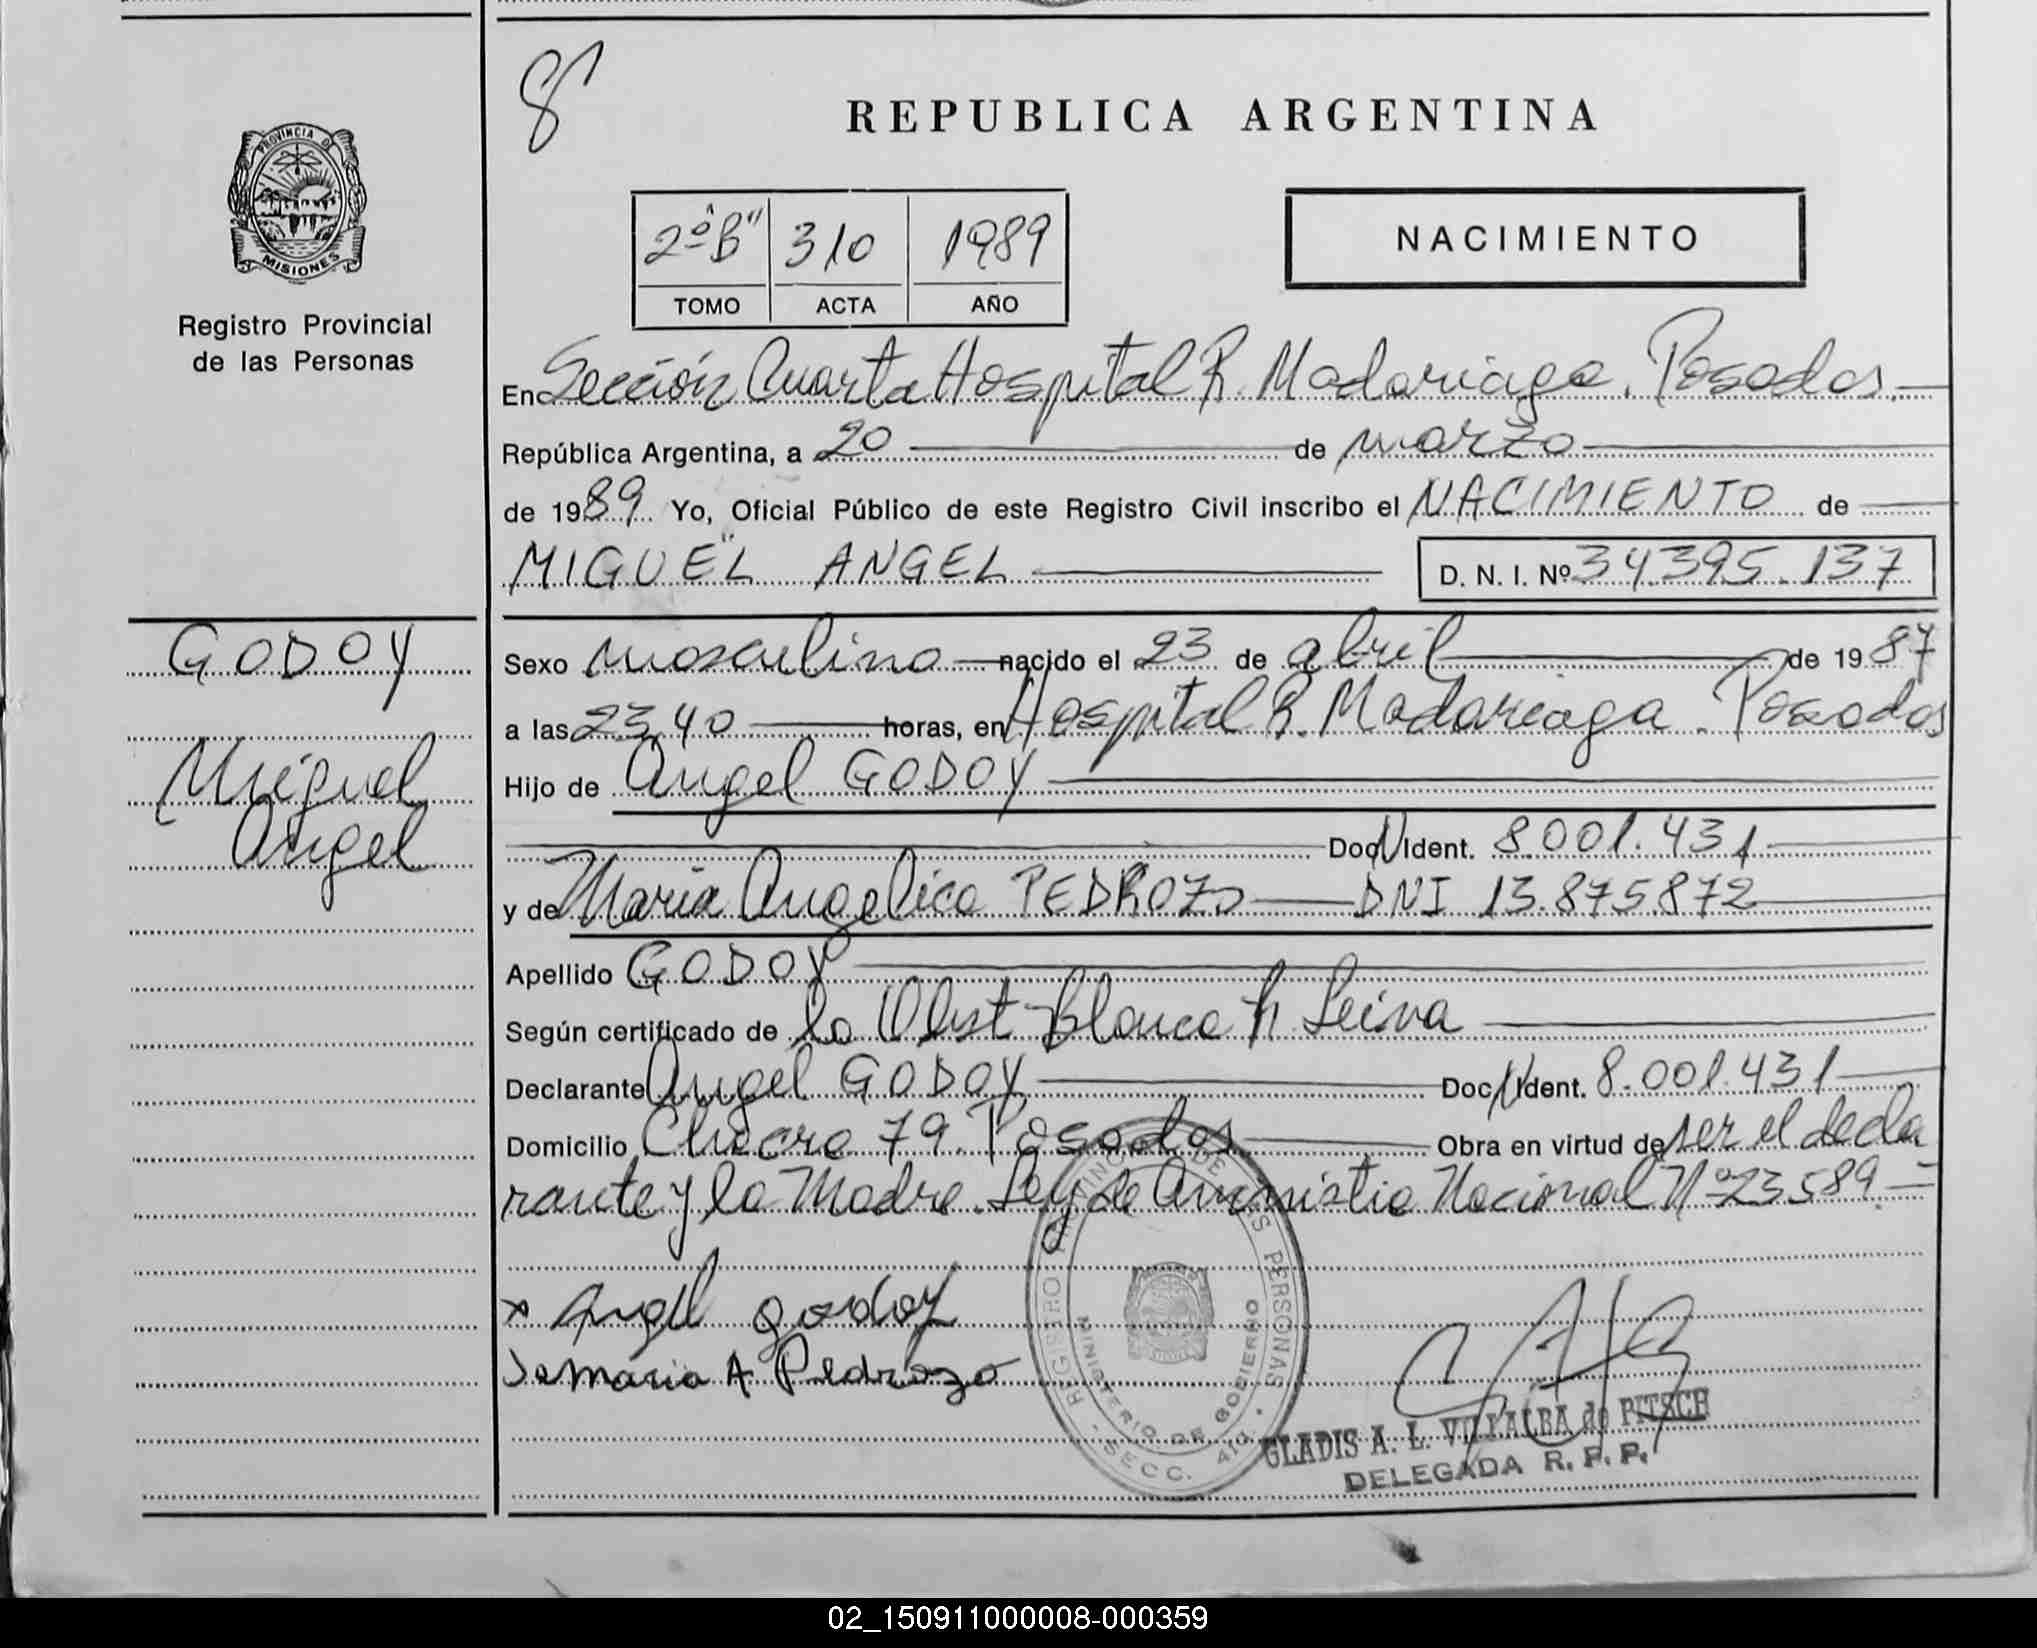 8
REPUBLICA ARGENTINA
PROVINCIA DE
MISIONES
Registro Provincial
de las Personas
2º "B" 310 1989
TOMO ACTA AÑO
NACIMIENTO
En Sección Cuarta Hospital R. Madariaga. Posadas.
República Argentina, a 20 de marzo
de 1989 Yo, Oficial Público de este Registro Civil inscribo el NACIMIENTO de
MIGUEL ANGEL D. N. I. Nº 34.395.137
GODOY
Miguel
Angel
Sexo masculino nacido el 23 de abril de 1987
a las 23,40 horas, en Hospital R. Madariaga. Posadas
Hijo de Angel GODOY
Doc. Ident. 8.001.431
y de Maria Angelica PEDROZO DNI 13.875.872
Apellido GODOY
Según certificado de la Obst Blanca h Leiva
Declarante Angel GODOY Doc. Ident. 8.001.431
Domicilio Chacra 79. Posadas Obra en virtud de ser el decla
rante y la Madre. Ley de Amnistia Nacional Nº 23.589
x Angel godoy
maria A Pedrozo
REGISTRO PROVINCIAL DE LAS PERSONAS
MINISTERIO DE GOBIERNO
SECC. 4ta.
GLADIS A. L. VILLALBA de PITSCH
DELEGADA R. P. P.
02_150911000008-000359